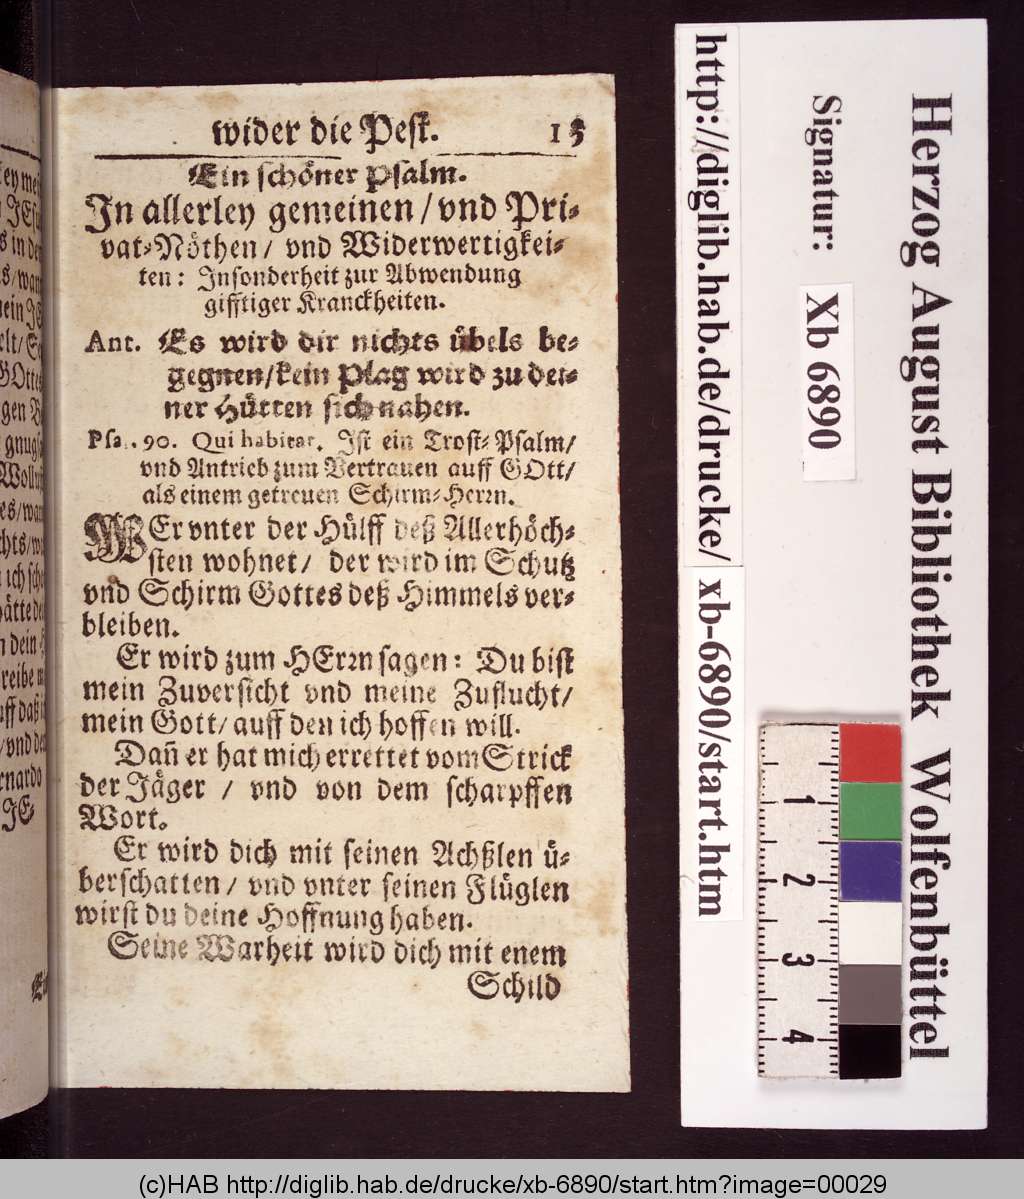 wider die Pest. 15
Ein schöner Psalm.
In allerley gemeinen / vnd Pri-
vat-Nöthen / vnd Widerwertigkei-
ten: Insonderheit zur Abwendung
gifftiger Kranckheiten.
Ant. Es wird dir nichts übels be-
gegnen/kein Plag wird zu dei-
ner Hütten sich nahen.
Psa. 90. Qui habitat. Ist ein Trost-Psalm/
vnd Antrieb zum Vertrauen auff GOtt/
als einem getreuen Schirm-Herrn.
WEr vnter der Hülff deß Allerhöch-
sten wohnet / der wird im Schutz
vnd Schirm Gottes deß Himmels ver-
bleiben.
Er wird zum HErrn sagen: Du bist
mein Zuversicht vnd meine Zuflucht/
mein Gott/ auff den ich hoffen will.
Dañ er hat mich errettet vom Strick
der Jäger / vnd von dem scharpffen
Wort.
Er wird dich mit seinen Achßlen ü-
berschatten / vnd vnter seinen Flüglen
wirst du deine Hoffnung haben.
Seine Warheit wird dich mit enem
Schild
Herzog August Bibliothek Wolfenbüttel
Signatur: Xb 6890
http://diglib.hab.de/drucke/ xb-6890/start.htm
1
2
3
4
(c)HAB http://diglib.hab.de/drucke/xb-6890/start.htm?image=00029